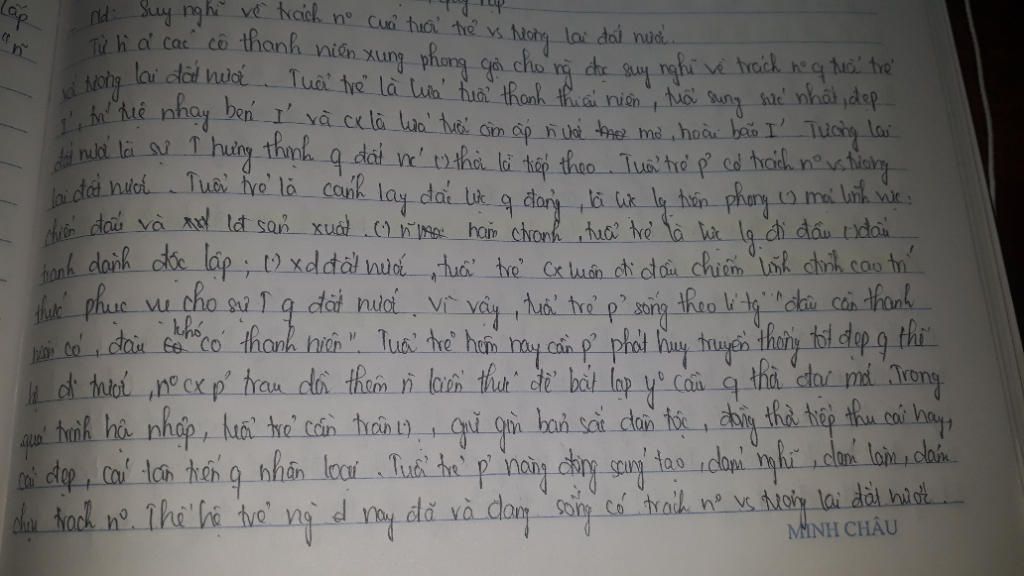 cấp
nd: Suy nghĩ về trách nº của tuổi trẻ vs tương lai đất nước.
Từ h á các cô thanh niên xung phong gợi cho ng đọc suy nghĩ về trách nº q tuổi trẻ
với tương lai đất nước. Tuổi trẻ là lứa tuổi thanh thiếu niên, tuổi sung sức nhất, đẹp
I', trí tuệ nhạy bén I' và cx là lứa tuổi ôm ấp n ước mơ, hoài bão I'. Tương lai
đất nước là sự ↑ hưng thịnh q đất nc' (.) thời kì tiếp theo. Tuổi trẻ p' có trách nº vs tương
lai đất nước. Tuổi trẻ là cánh tay đắc lực q đảng, là lực lg tiên phong (.) mọi lĩnh vực:
chiến đấu và lđ sản xuất. (.) n năm ctranh, tuổi trẻ là lực lg đi đầu (.) đấu
tranh dành độc lập; (.) xd đất nước, tuổi trẻ cx luôn đi đầu chiếm lĩnh đỉnh cao trí
thức phục vụ cho sự ↑ q đất nước. Vì vậy, tuổi trẻ p' sống theo lí tg "đâu cần thanh
niên có, đâu khó có thanh niên". Tuổi trẻ hiện nay cần p' phát huy truyền thống tốt đẹp q thế
hệ đi trước, nº cx p' trau dồi thêm n kiến thức để bắt kịp yº cầu q thời đại mới. Trong
quá trình hội nhập, tuổi trẻ cần trân (.), giữ gìn bản sắc dân tộc, đồng thời tiếp thu cái hay,
cái đẹp, cái tân tiến q nhân loại. Tuổi trẻ p' năng động sáng tạo, dám nghĩ, dám làm, dám
chịu trách nº. Thế hệ trẻ ng d nay đã và đang sống có trách nº vs tương lai đất nước.
MINH CHÂU